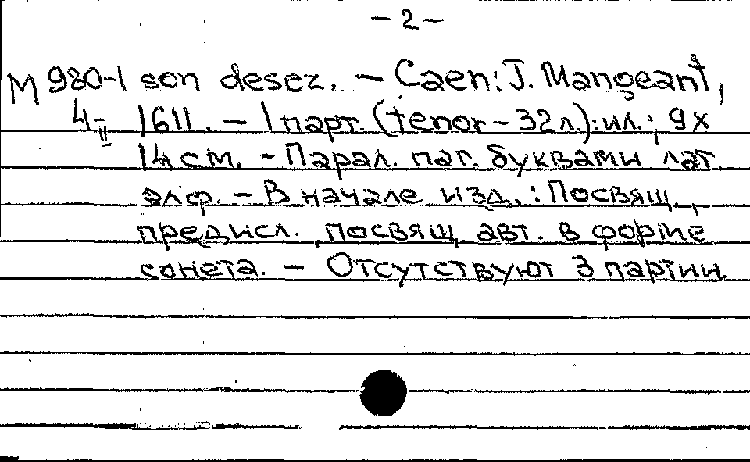 – 2 –
М 980-1 son deser. – Caen: J. Mangeant,
4-II 1611. – 1 парт. (tenor – 32 л.): ил.; 9 х
14 см. – Парал. паг. буквами лат.
алф. – В начале изд.: Посвящ.,
предисл., посвящ. авт. в форме
сонета. – Отсутствуют 3 партии.